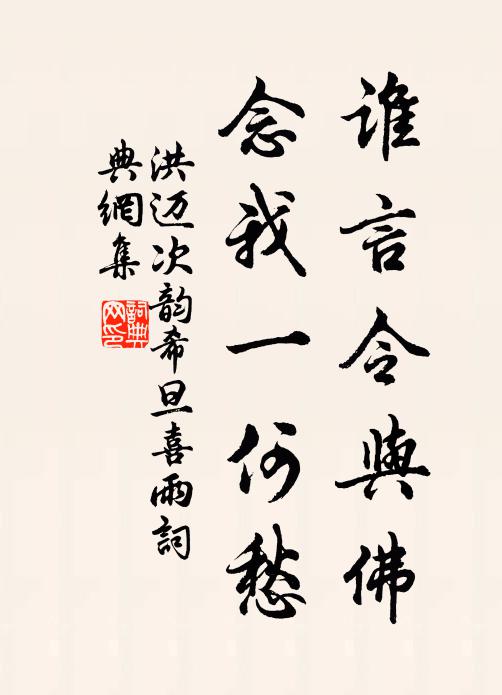 谁言令與佛
念我一何愁
洪迈次韵希旦喜雨詞
典網集
詞典
网印